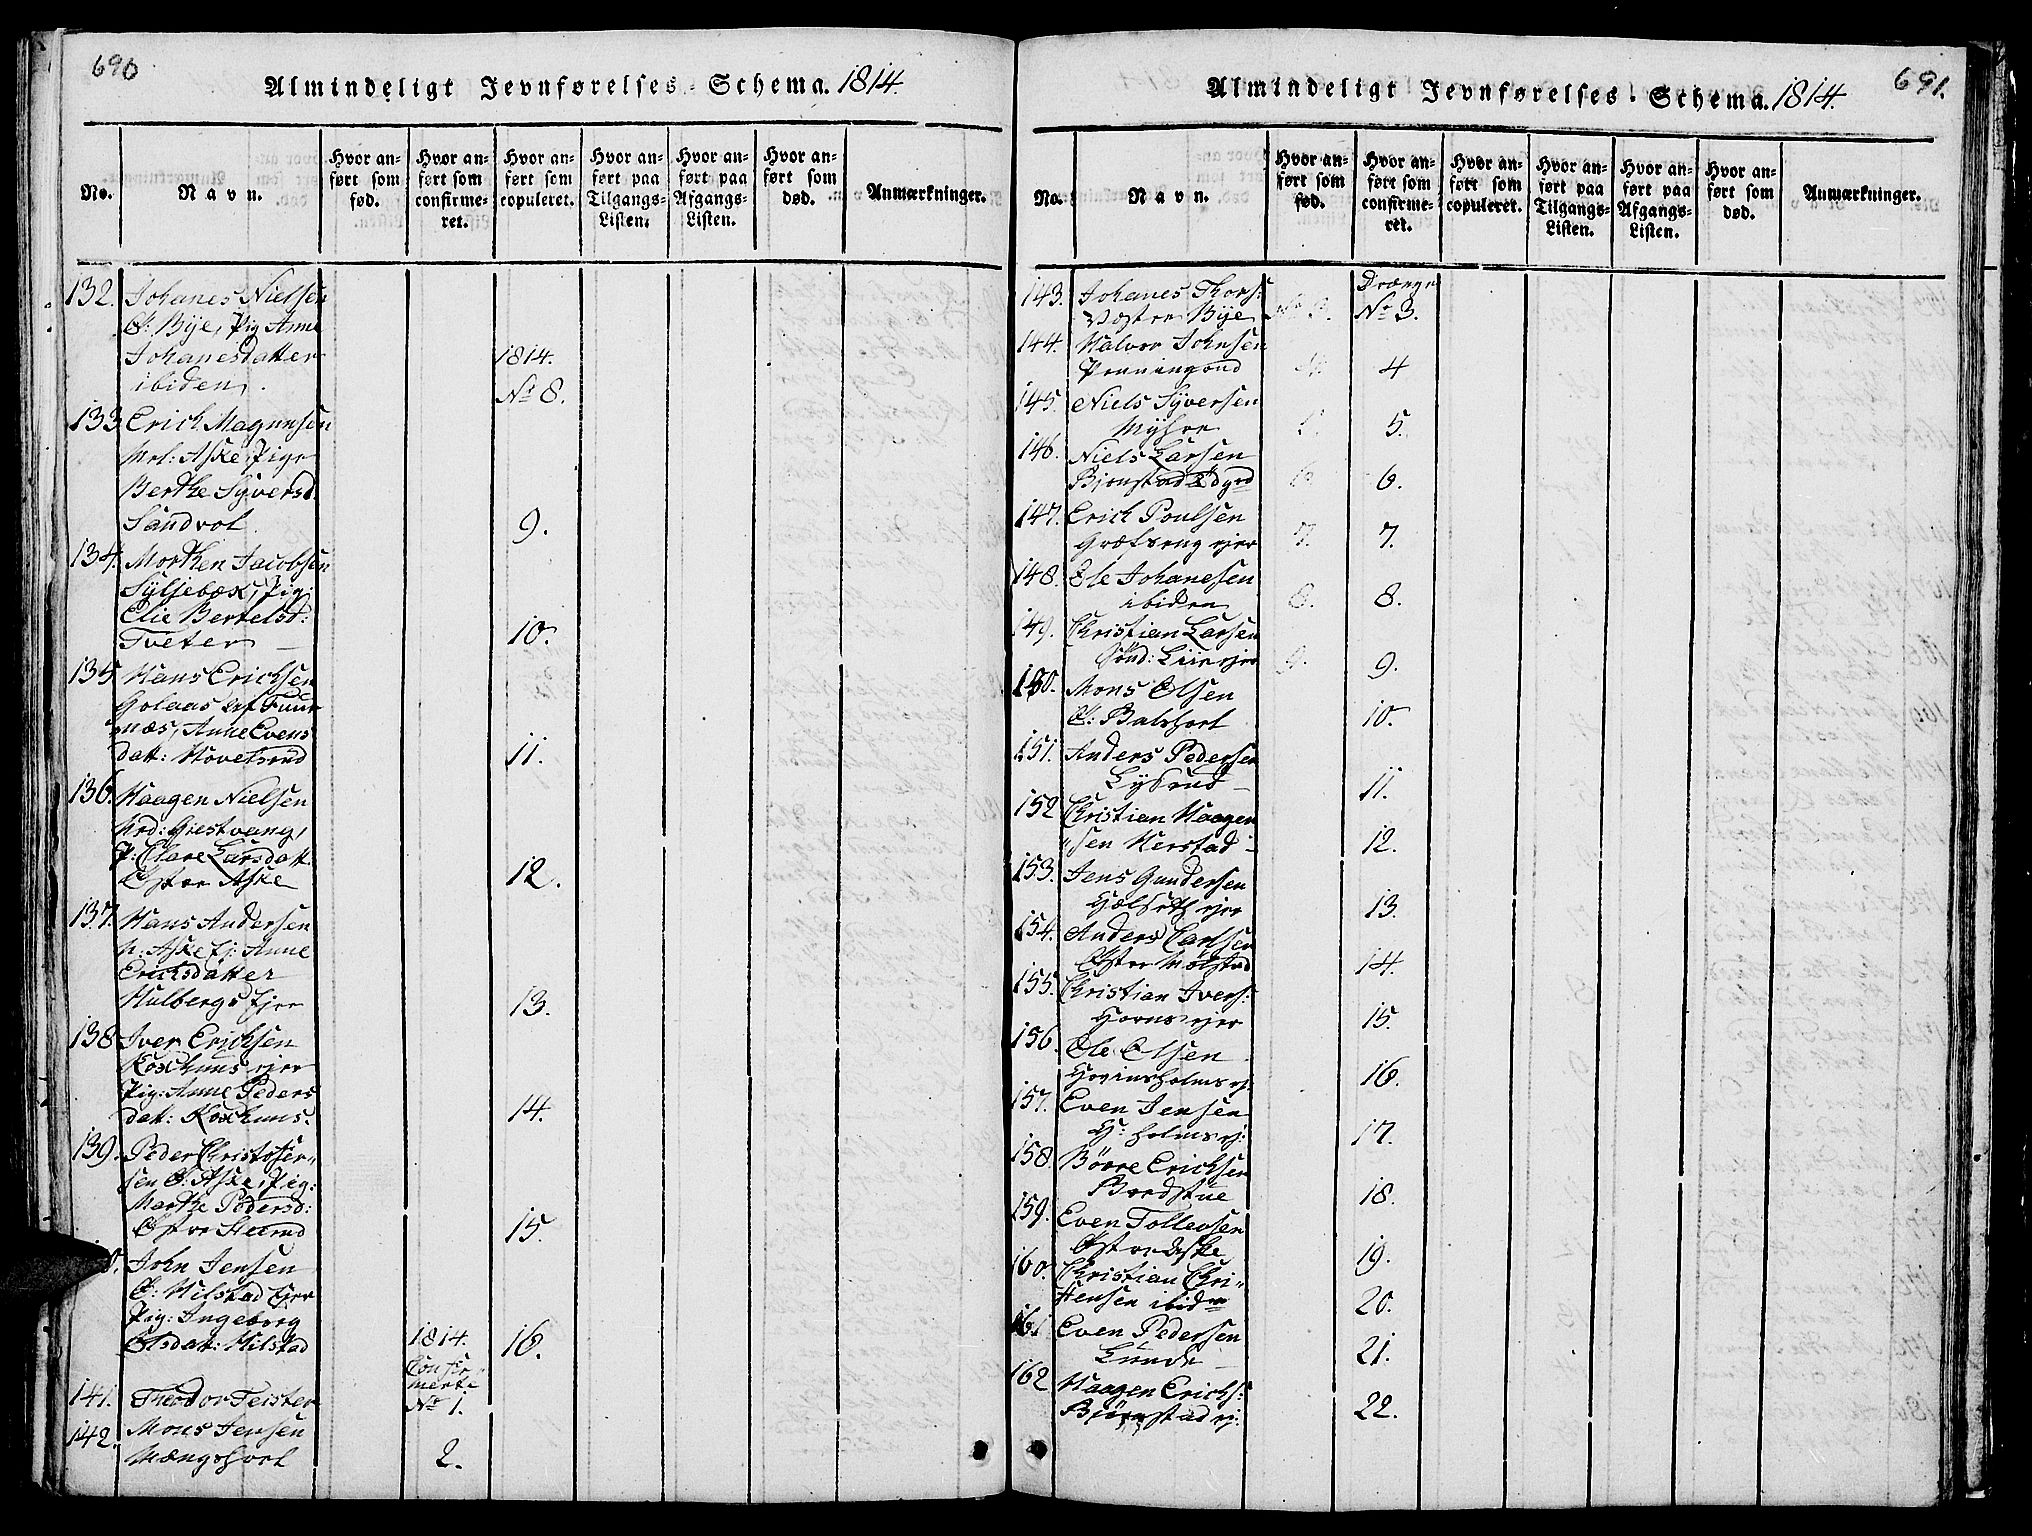 690
Almindeligt Jevnførelses-Schema. 1814.
No.
Navn.
Hvor anført som fød.
Hvor anført som confirmeret.
Hvor anført som copuleret.
Hvor anført paa Tilgangs-Listen.
Hvor anført paa Afgangs-Listen.
Hvor anført som død.
Anmærkninger.
132. Johanes Nielsen
Ø: Bÿe, Pig Anne
Johanesdatter 1814.
ibidem. No 8.
133 Erich Magnusen
Mel: Aske, Pige
Berthe Syversd.
Sandvol. 9.
134. Morthen Jacobsen
Syljebæk, Pig:
Elie Bertelsd:
Tveter 10.
135 Hans Erichsen
Golaas
næs, Anne Evens
datt: Hovelsrud 11.
136. Haagen Nielsen
Nrd: Giestvang,
P: Larsdatt.
Østre Aske 12.
137. Hans Andersen
N: Aske Ej: Anne
Erichsdatter
Hulbergs Ejer 13.
138 Iver Erichsen
Koxhuus ejer
Pig: Anne Peders
datt: Koxhuus. 14.
139. Peder Christofer„
sen Ø: Aske, Pig:
Marthe Pedersd:
Østre Steenrud 15.
John Jensen
Ø: Hilstad Ejer
Pig: Ingeborg
Olsdatt: Hilstad 1814. 16.
Confir
merte
141. Theodor Teister No 1.
142. Mons Jensen
Mængshoel 2.
691.
Almindeligt Jevnførelses-Schema. 1814.
No.
Navn.
Hvor anført som fød.
Hvor anført som confirmeret.
Hvor anført som copuleret.
Hvor anført paa Tilgangs-Listen.
Hvor anført paa Afgangs-Listen.
Hvor anført som død.
Anmærkninger.
Drænge
143. Johanes Thors:
Vestre Bÿe No 3.
144. Halvor Johnsen
Penningrud 4
145. Niels Syversen
Myhre 5.
146. Niels Larsen
Bjønstad 6.
147. Erich Poulsen
Grefseng ejer 7. 7.
148. Ole Johanesen
ibidem 8. 8.
149. Christian Larsen
Sønd: Liie ejer 9. 9.
150. Mons Olsen
Ø: Balshoel 10.
151. Anders Pedersen
Lysrud 11.
152 Christian Haagen
„sen Herstad 12.
153. Jens Gundersen
Hælseth ejer 13.
154. Anders Carlsen
Østre Mølstad 14.
155. Christian Ivers:
Horns ejer 15.
156. Ole Olsen
Hovinsholms ej 16.
157. Even Jensen
H: holms ej: 17.
158. Børre Erichsen
Bredstue 18.
159. Even Tollevsen
Østre Aske 19.
160. Christian Chri„
stensen ibidm 20.
161 Even Pedersen
Lunde 21.
162 Haagen Erichs:
Bjørnstad ej: 22.